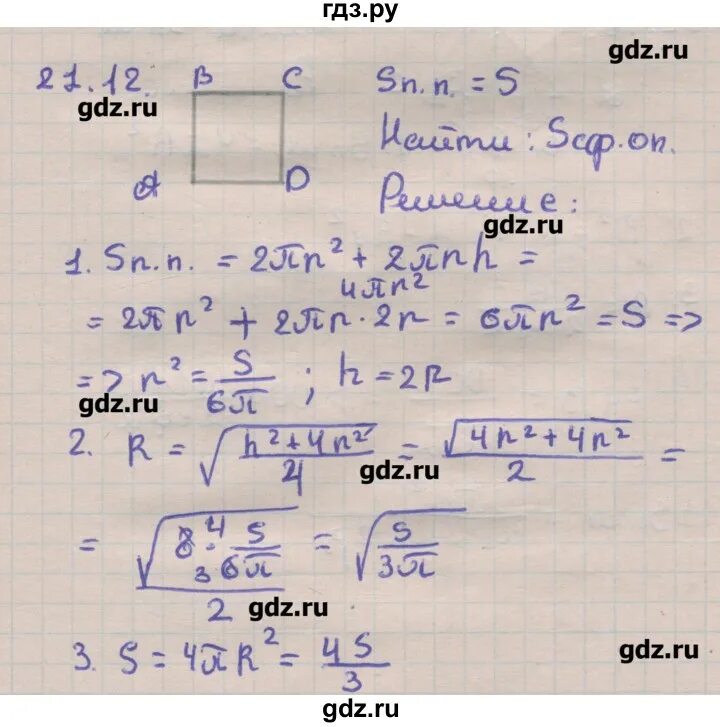 гдз.ру
gdz.ru
21.12. B C Sп.п. = S
gdz.ru
Найти: Sсф.оп.
A D Решение:
gdz.ru
1. Sп.п. = 2πr² + 2πrh =
4πr²
= 2πr² + 2πr · 2r = 6πr² = S =>
=> r² = S/6π ; h = 2R
gdz.ru
2. R = √(h² + 4r²/4) = √(4r² + 4r²)/2 =
gdz.ru
= √(8 4 · S/3 6π)/2 = √(S/3π)
gdz.ru
gdz.ru
3. S = 4πR² = 4S/3
gdz.ru